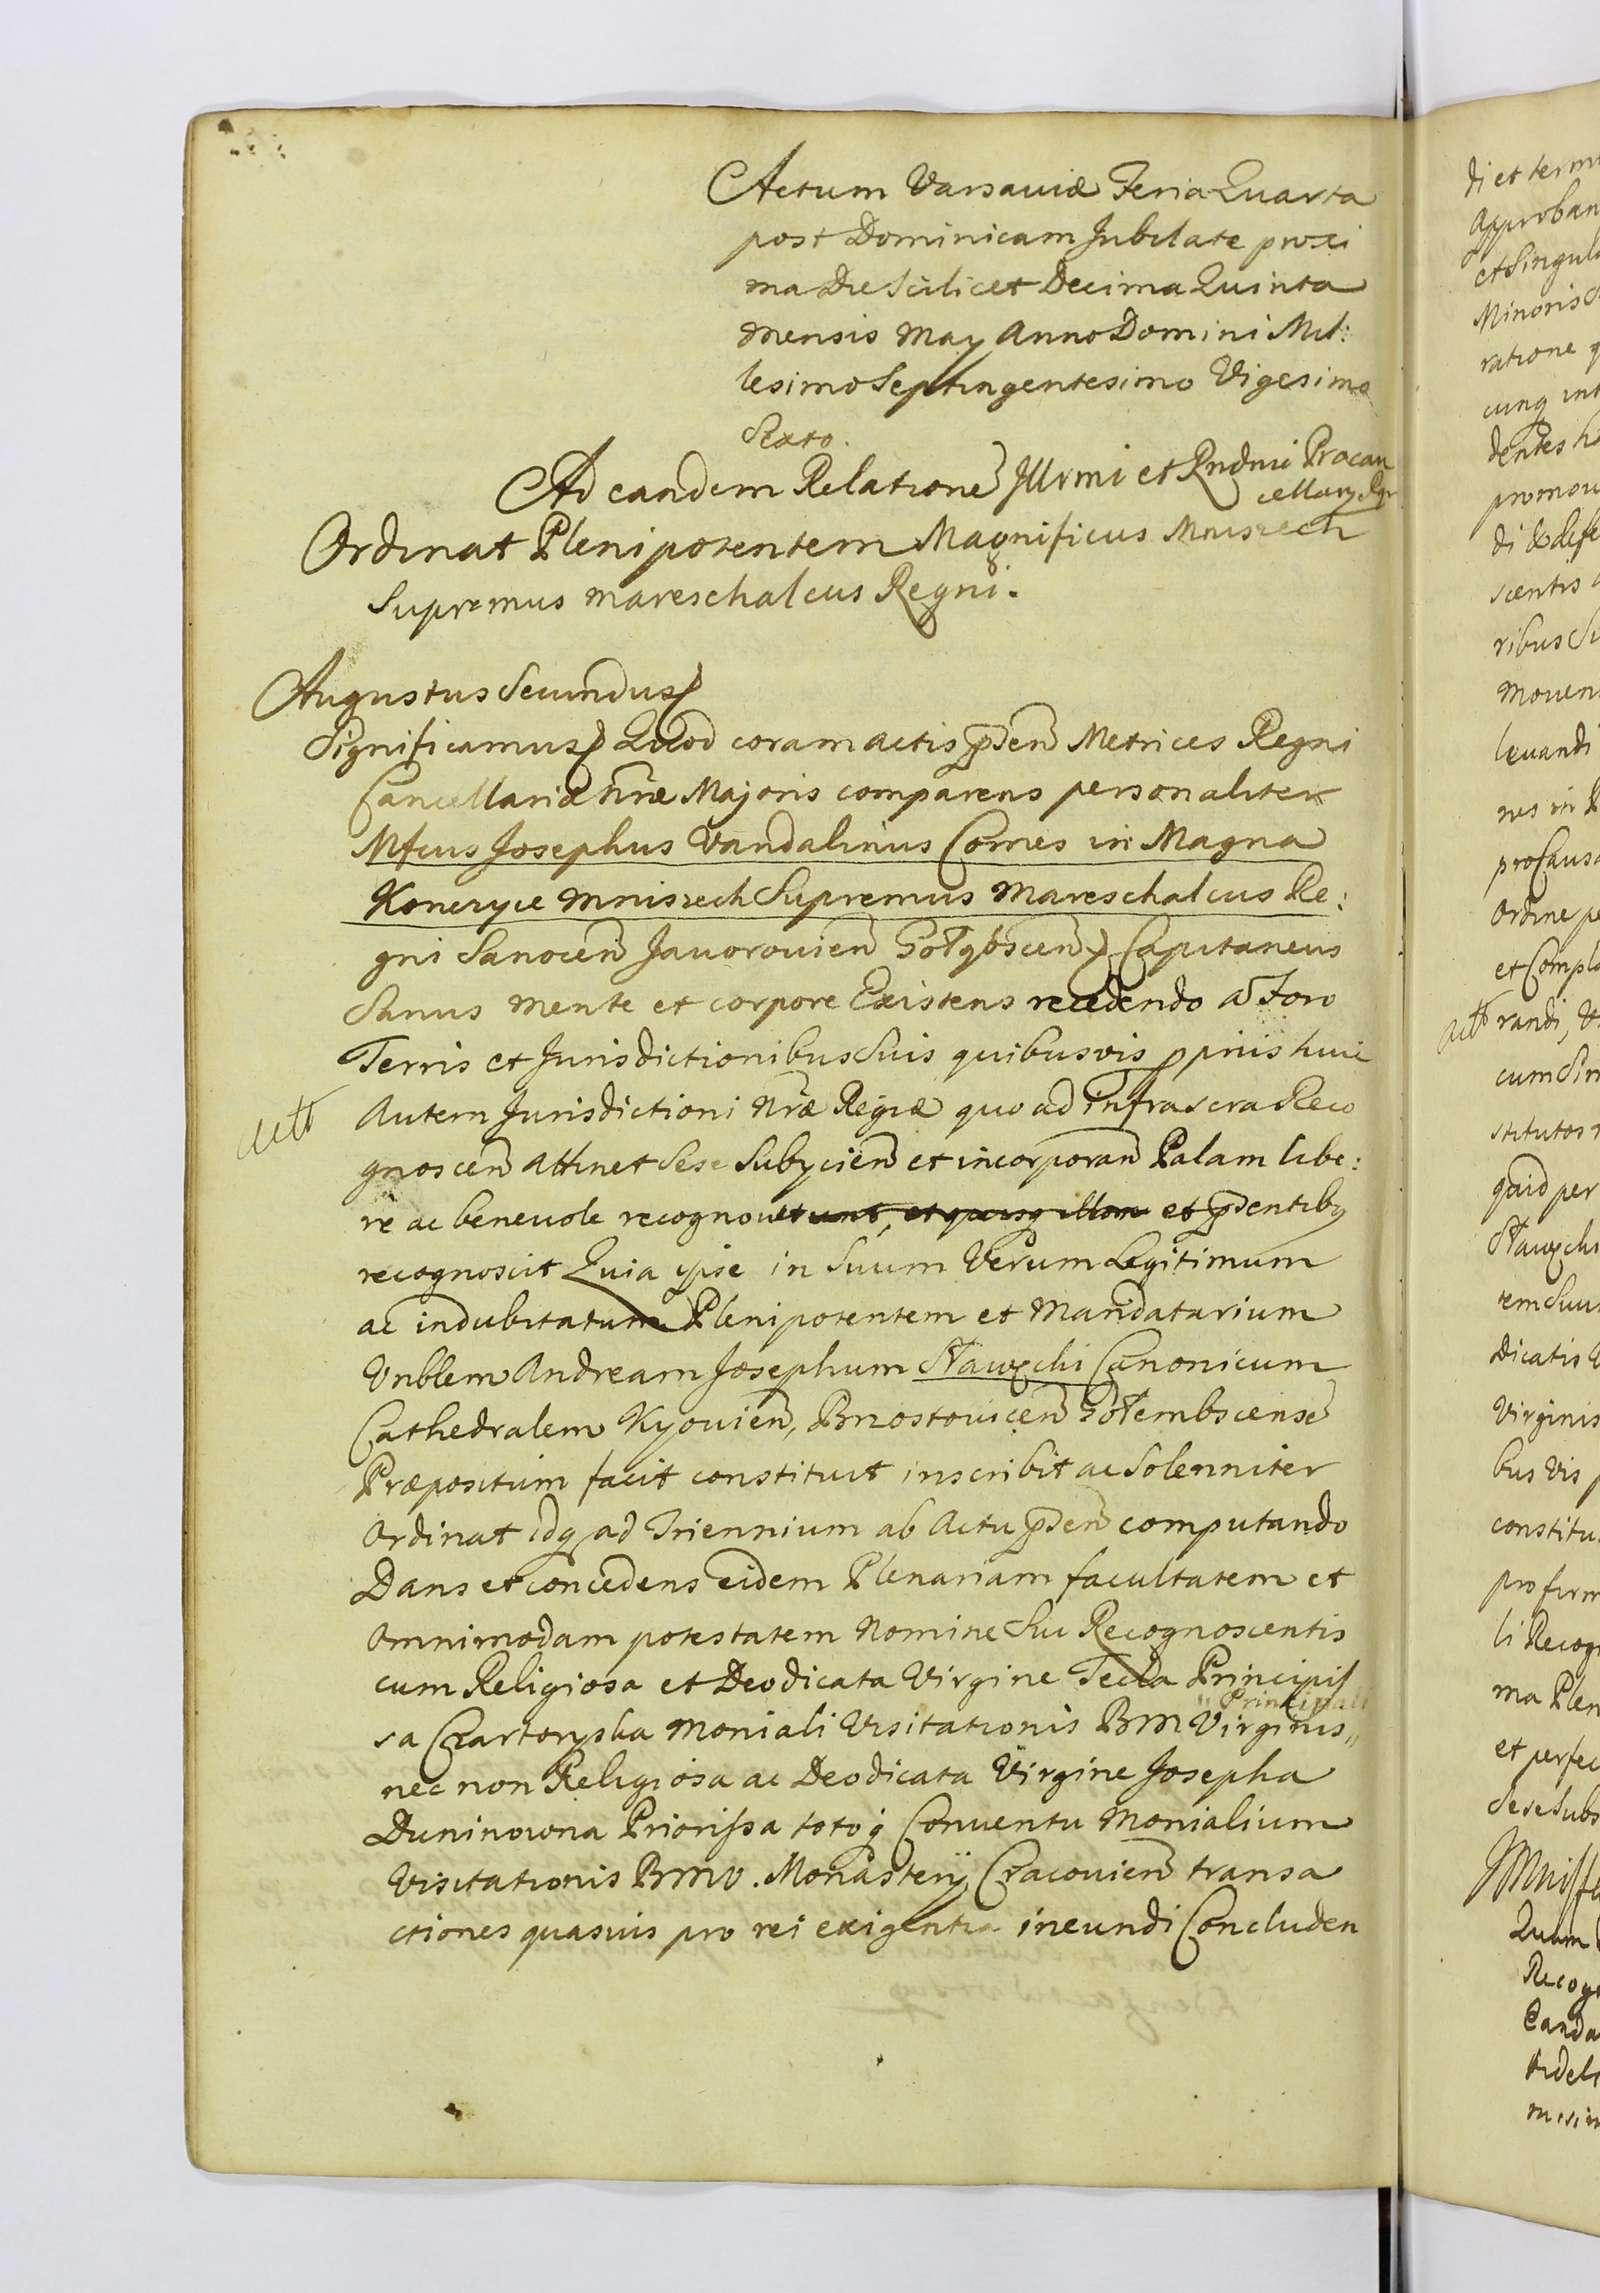 Actum Varsaviæ Feria Quarta
post Dominicam Jubilate proxi
ma Die Scilicet Decima Quinta
mensis May Anno Domini Mil:
lesimo Septingentesimo Vigesimo
Sexto.
Ad eandem Relatione Illrmi et Rndmi Procan
cellary Rgn
Ordinat Plenipotentem Magnificus Mniszech
Supremus mareschalcus Regni.
Augustus Secundus
Significamus Quod coram actis pden Metrices Regni
Cancellariæ nræ Majoris comparens personaliter
Mfcus Josephus Vandalinus Comes in Magna
Konczyce Mniszech Supremus Mareschalcus Re:
gni Sanocen Javorovien Capitaneus
Sanus mente et corpore Existens recedendo a Foro
Terris et Jurisdictionibus Suis quibusvis ppriis huic
Autem Jurisdictioni Nræ Regiæ quo ad infrascra Reco
gnoscen attinet Sese Subycien et incorporan Palam libe:
re ac benevole recognovit et pdentibq
recognoscit Quia ipse in Suum Verum Legitimum
ac indubitatum Plenipotentem et Mandatarium
Vnblem Andream Josephum Canonicum
Cathedralem Kyovien, Gołembscense
Præpositum facit constituit inscribit ac Solenniter
Ordinat idq ad Triennium ab Actu pden computando
Dans et concedens eidem Plenariam facultatem et
omnimodam potestatem Nomine Sui Recognoscentis
cum Religiosa et Deodicata Virgine Tecla Principis
"Principali
sa Czartoryska Moniali Visitationis BM Virginis"
nec non Religiosa ac Deodicata Virgine Josepha
Duninowna Priorissa totoq Conventu Monialium
Visitationis BMV. Monastery Cracovien transa
ctiones quasvis pro rei exigentia ineundi Concluden
di et term
Approban
et Singul
Minoris
ratione q
cunq int
dentes
promov
di &
scentis
ribus Su
Moven
levandi
nes in
pro Caus
Ordine pe
et Compl
randi,
cum Sim
stitutos
quid per
tem Suu
Dicatis
Virginis
bus Vis
constitu
pro firm
li Recog
ma Plen
et perfec
Sese Subs
Quam
Recog